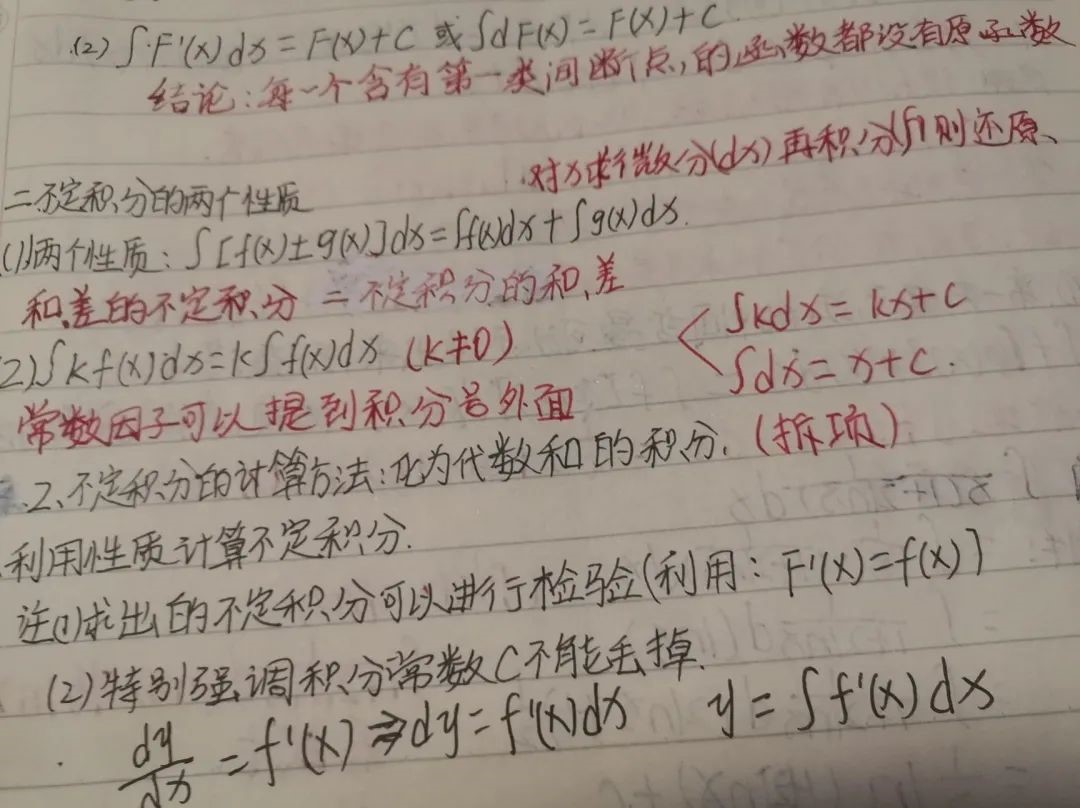 (2) ∫F'(x)dx = F(x)+C 或 ∫dF(x) = F(x)+C
结论:每一个含有第一类间断点,的函数都没有原函数
对x求微分(dx)再积分(∫)则还原、
二.不定积分的两个性质
(1)两个性质: ∫[f(x)±g(x)]dx=∫f(x)dx+∫g(x)dx.
和、差的不定积分 = 不定积分的和、差
(2)∫kf(x)dx=k∫f(x)dx (k≠0)
∫kdx = kx+C
∫dx = x+C.
常数因子可以提到积分号外面
2、不定积分的计算方法:化为代数和的积分.(拆项)
利用性质计算不定积分.
注(1)求出的不定积分可以进行检验(利用: F'(x)=f(x)]
(2)特别强调积分常数C不能丢掉.
dy/dx = f'(x) ⇒ dy = f'(x)dx y = ∫f'(x)dx